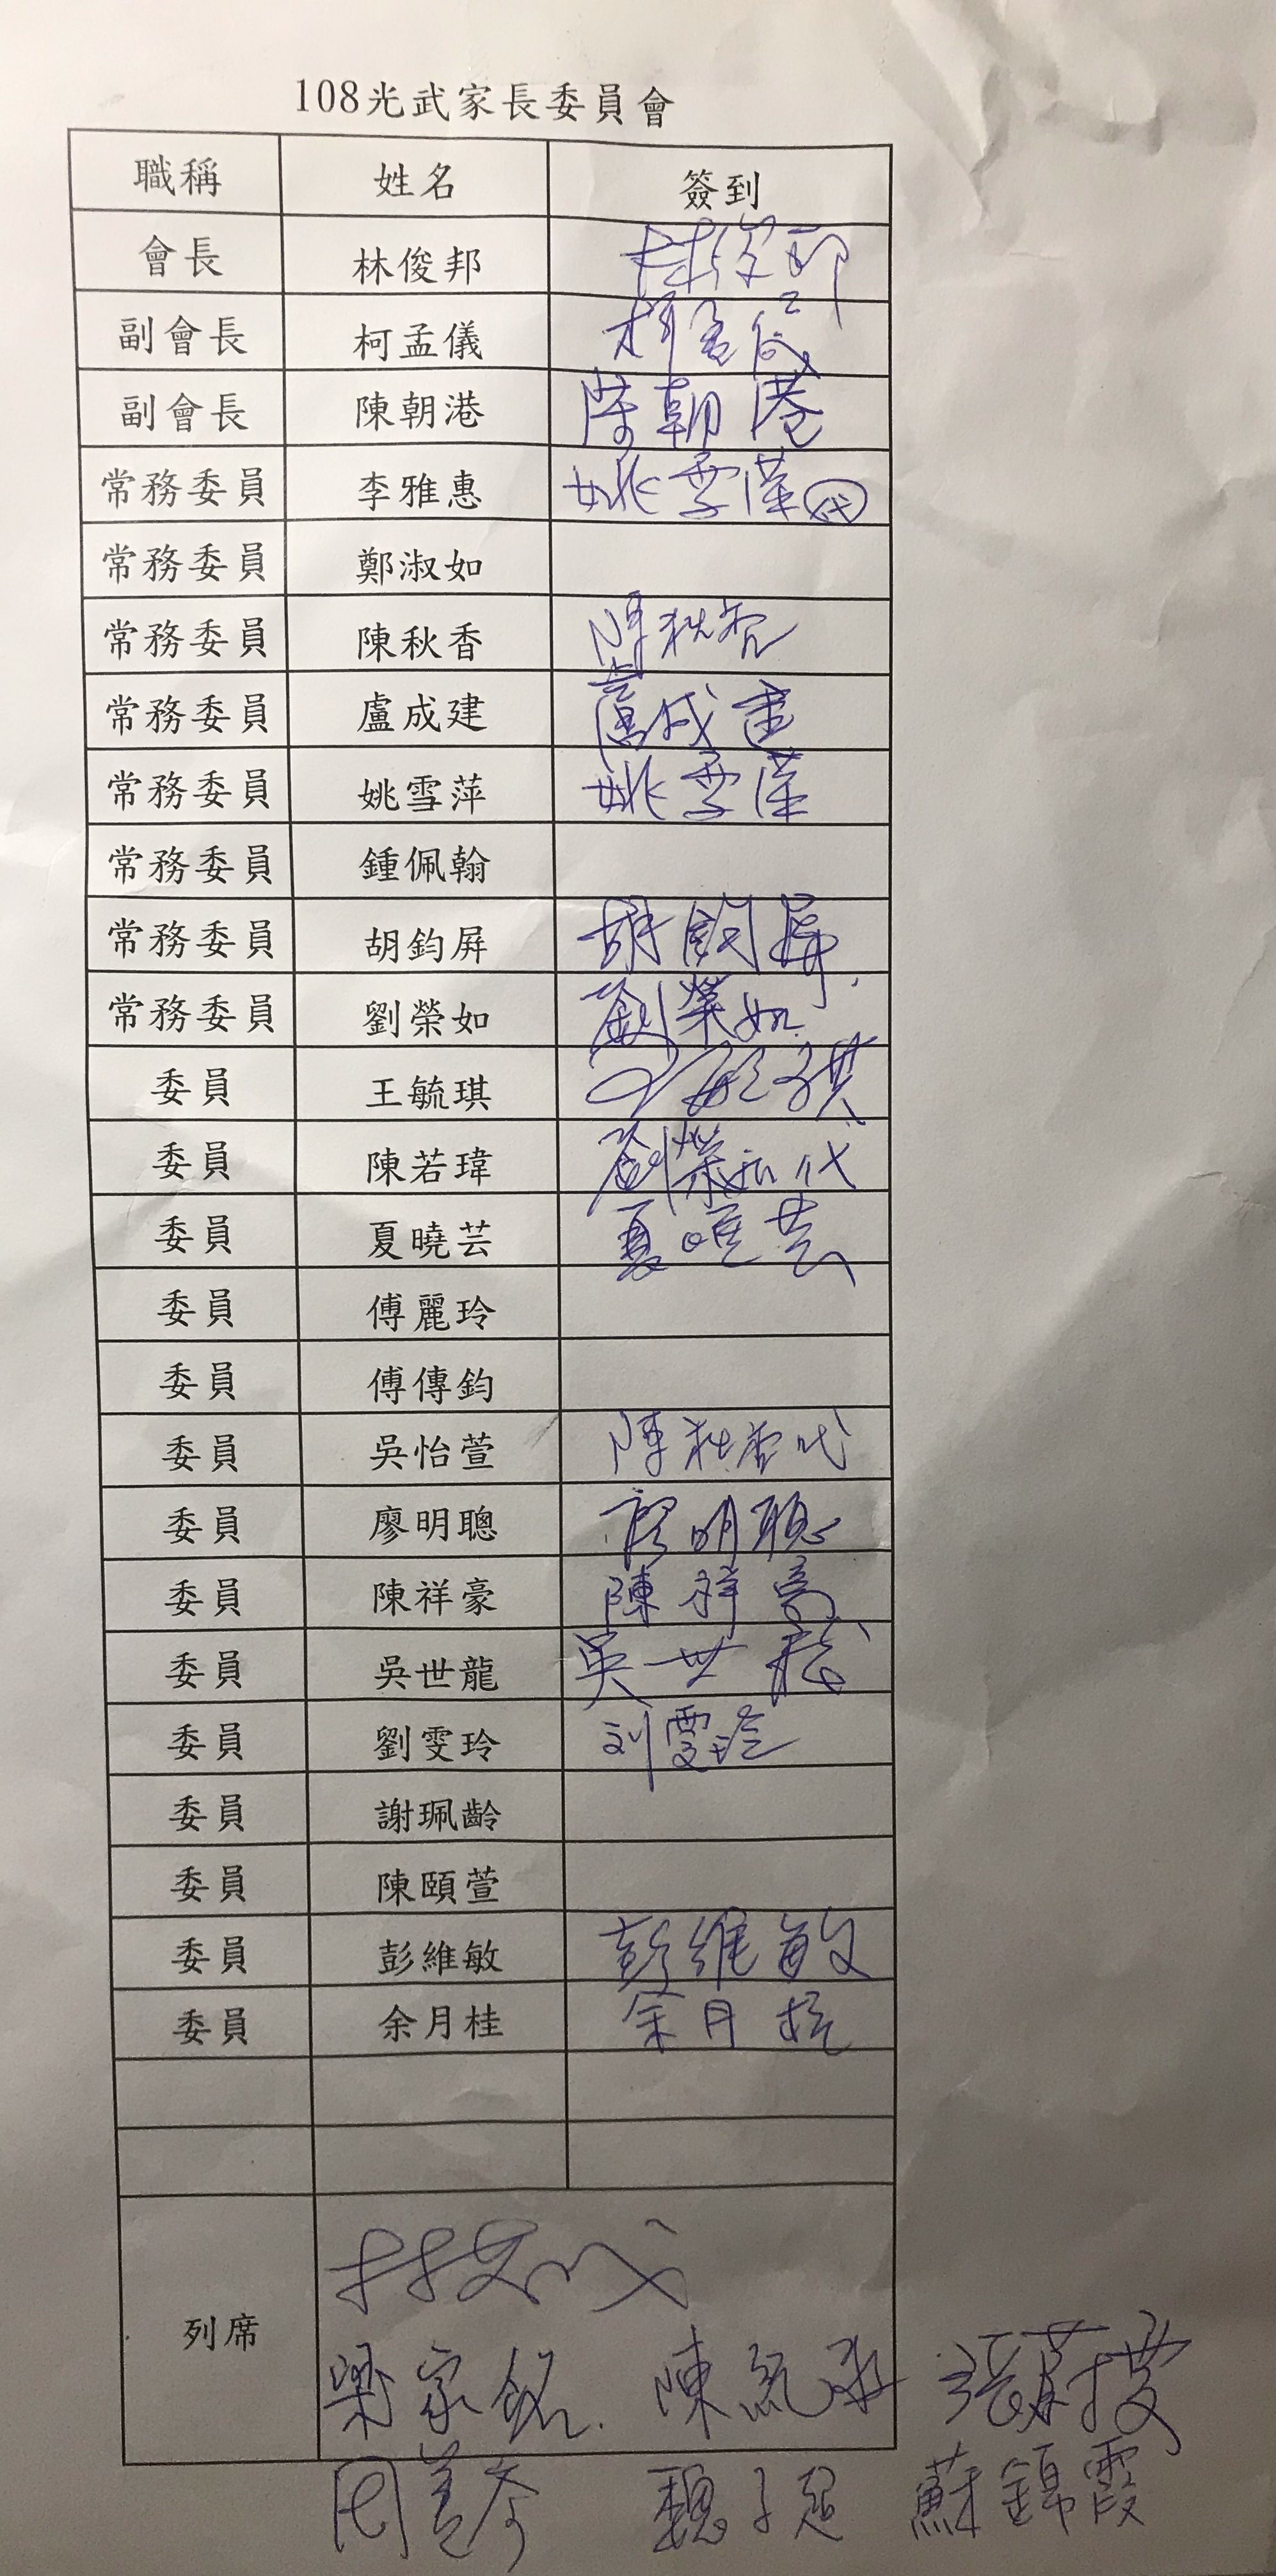 108光武家長委員會
職稱 姓名 簽到
會長 林俊邦 林俊邦
副會長 柯孟儀 柯孟儀
副會長 陳朝港 陳朝港
常務委員 李雅惠 姚雪萍代
常務委員 鄭淑如
常務委員 陳秋香 陳秋香
常務委員 盧成建 盧成建
常務委員 姚雪萍 姚雪萍
常務委員 鍾佩翰
常務委員 胡鈞屏 胡鈞屏
常務委員 劉榮如 劉榮如
委員 王毓琪 王毓琪
委員 陳若瑋 劉榮如代
委員 夏曉芸 夏曉芸
委員 傅麗玲
委員 傅傳鈞
委員 吳怡萱 陳秋香代
委員 廖明聰 廖明聰
委員 陳祥豪 陳祥豪
委員 吳世龍 吳世龍
委員 劉雯玲 刘雯玲
委員 謝珮齡
委員 陳頤萱
委員 彭維敏 彭維敏
委員 余月桂 余月桂
列席
梁家銘 陳
蘇錦霞